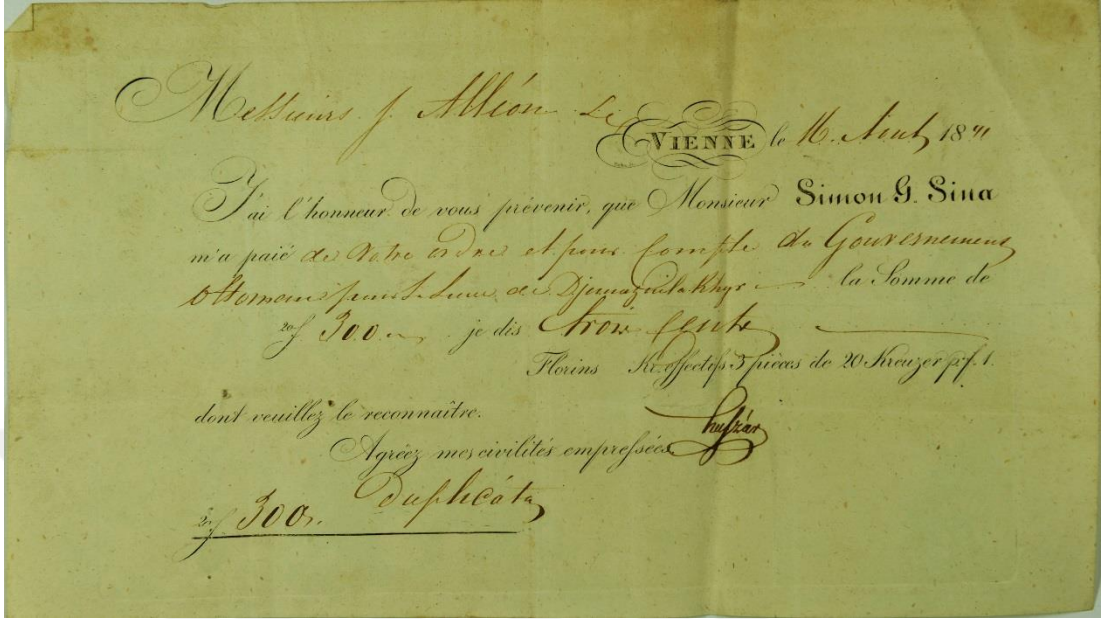 Messieurs J. Alléon
VIENNE le 16. Aout 1841
J'ai l'honneur de vous prévenir, que Monsieur Simon G. Sina
m'a paié de votre ordre et pour Compte du Gouvernement
Ottoman pour de la Somme de
300 je dis trois Cents
Florins Kr. effectifs 3 pièces de 20 Kreuzer p.f. 1.
dont veuillez le reconnaître.
Agréez mes civilités empressées
Huszár
Duplicata
300